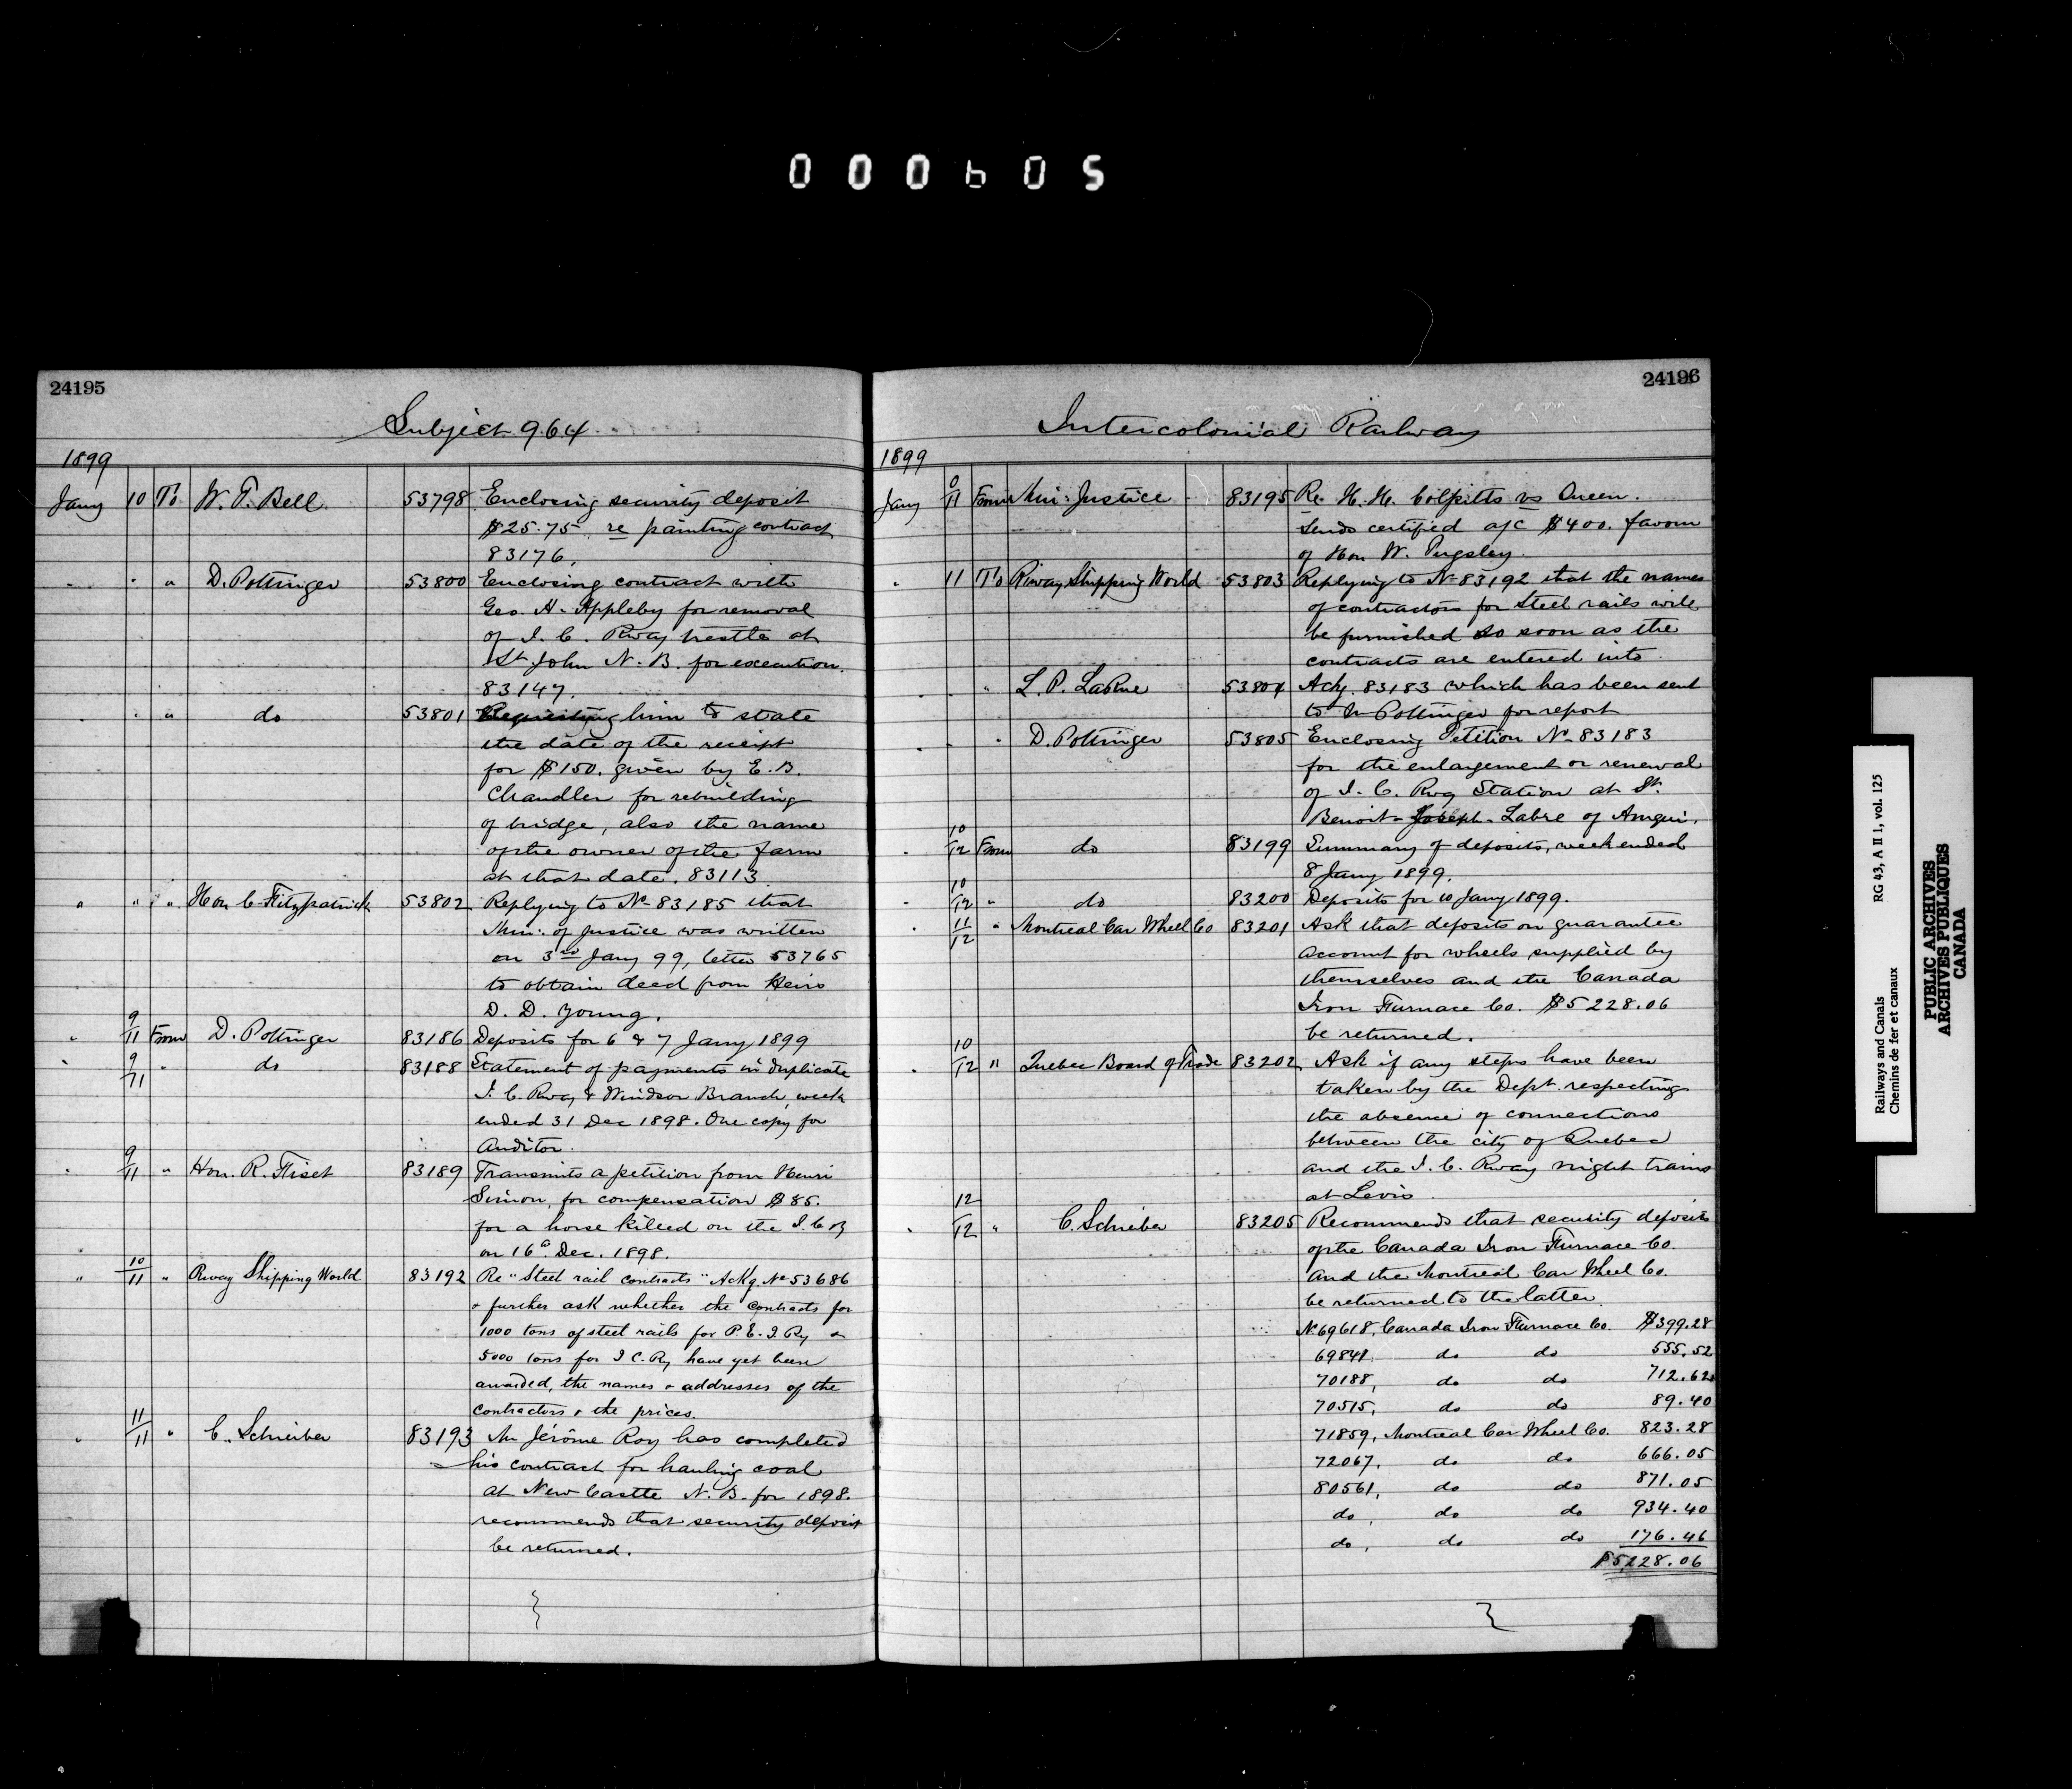 000605
24195
Subject 964
1899
Jany 10 To W. T. Bell 53798 Enclosing security deposit
$25.75 re painting contract
83176.
" " " D. Pottinger 53800 Enclosing contract with
Geo. H. Appleby for removal
of I. C. Rway trestle at
St John N. B. for execution.
83147.
" " " do 53801 Requesting him to state
the date of the receipt
for $150. given by E. B.
Chandler for rebuilding
of bridge, also the name
of the owner of the farm
at that date. 83113
" " " Hon C. Fitzpatrick 53802 Replying to No 83185 that
Min. of Justice was written
on 3rd Jany 99, letter 53765
to obtain deed from Heirs
D. D. Young.
" 9/11 From D. Pottinger 83186 Deposits for 6 & 7 Jany 1899
" 9/11 " do 83188 Statement of payments in duplicate
I. C. Rway & Windsor Branch, week
ended 31 Dec 1898. One copy for
Auditor.
" 9/11 " Hon. R. Fiset 83189 Transmits a petition from Henri
Simon, for compensation $85.
for a horse killed on the I. C. R
on 16th Dec. 1898.
" 10/11 " Rway Shipping World 83192 Re "Steel rail contracts" Ackg No 53686
& further ask whether the contracts for
1000 tons of steel rails for P. E. I Ry &
5000 tons for I C. Ry have yet been
awarded, the names & addresses of the
contractors & the prices.
" 11/11 " C. Schreiber 83193 Mr Jérôme Roy has completed
his contract for hauling coal
at New Castle N. B. for 1898.
recommends that security deposit
be returned.
24196
Intercolonial Railway
1899
Jany 0/11 From Min. Justice 83195 Re. H. H. Colpitts vs Queen.
Sends certified a/c $400. favour
of Hon W. Pugsley.
" 11 To Rway Shipping World 53803 Replying to No 83192 that the names
of contractors for steel rails will
be furnished so soon as the
contracts are entered into.
" " L. P. LaRue 53804 Ackg. 83183 which has been sent
to Mr Pottinger for report
" " D. Pottinger 53805 Enclosing Petition No 83183
for the enlargement or renewal
of I. C. Rwy Station at St.
Benoit-Joseph-Labre of Amqui.
" 10/12 From do 83199 Summary of deposits, week ended
8 Jany 1899.
" 10/12 " do 83200 Deposits for 10 Jany 1899.
" 11/12 " Montreal Car Wheel Co 83201 Ask that deposits on guarantee
account for wheels supplied by
themselves and the Canada
Iron Furnace Co. $5228.06
be returned.
" 10/12 " Quebec Board of Trade 83202 Ask if any steps have been
taken by the Dept. respecting
the absence of connections
between the city of Quebec
and the I. C. Rway night trains
at Levis
" 12/12 " C. Schreiber 83205 Recommends that security deposits
of the Canada Iron Furnace Co.
and the Montreal Car Wheel Co.
be returned to the latter.
No 69618, Canada Iron Furnace Co. $399.28
69841. do do 555.52
70188, do do 712.62
70515, do do 89.40
71859, Montreal Car Wheel Co. 823.28
72067, do do 666.05
80561, do do 871.05
do, do do 934.40
do, do do 176.46
$5,228.06
Railways and Canals RG 43, A II 1, vol. 125
Chemins de fer et canaux
PUBLIC ARCHIVES
ARCHIVES PUBLIQUES
CANADA